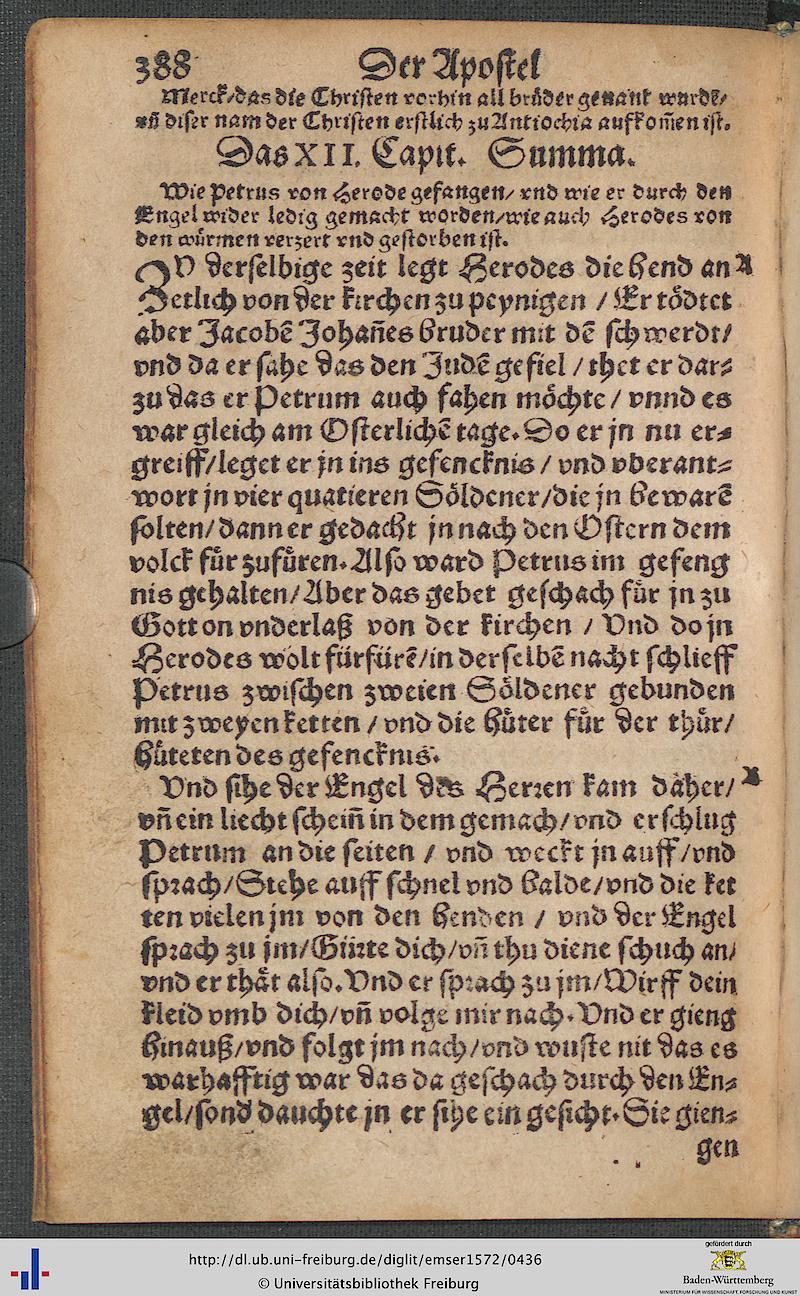 388 Der Apostel
Merck/das die Christen vorhin all brüder genant wurdē/
vñ diser nam der Christen erstlich zu Antiochia auffkom̃en ist.
Das XII. Capit. Summa.
Wie Petrus von Herode gefangen/ vnd wie er durch den
Engel wider ledig gemacht worden/wie auch Herodes von
den würmen verzert vnd gestorben ist.
ZV derselbige zeit legt Herodes die hend an A
etlich von der kirchen zu peynigen / Er tödtet
aber Jacobē Johañes bruder mit dē schwerdt/
vnd da er sahe das den Judē gefiel / thet er dar⸗
zu das er Petrum auch fahen möchte / vnnd es
war gleich am Osterlichē tage. Do er jn nu er⸗
greiff/leget er jn ins gefencknis / vnd vberant⸗
wort jn vier quatieren Söldener/die jn bewarē
solten/dann er gedacht jn nach den Ostern dem
volck für zufüren. Also ward Petrus im gefeng
nis gehalten/Aber das gebet geschach für jn zu
Gott on vnderlaß von der kirchen / Vnd do jn
Herodes wolt fürfürē/in derselbē nacht schlieff
Petrus zwischen zweien Söldener gebunden
mit zweyen ketten / vnd die hüter für der thür/
hüteten des gefencknis.
Vnd sihe der Engel des Herren kam daher/ B
vñ ein liecht scheiñ in dem gemach/vnd erschlug
Petrum an die seiten / vnd weckt jn auff/vnd
sprach/Stehe auff schnel vnd balde/vnd die ket
ten vielen jm von den henden / vnd der Engel
sprach zu jm/Gürte dich/vñ thu diene schuch an/
vnd er thät also. Vnd er sprach zu jm/Wirff dein
kleid vmb dich/vñ volge mir nach. Vnd er gieng
hinauß/vnd folgt jm nach/vnd wuste nit das es
warhafftig war das da geschach durch den En⸗
gel/sond dauchte jn er sihe ein gesicht. Sie gien⸗
gen
http://dl.ub.uni-freiburg.de/diglit/emser1572/0436
© Universitätsbibliothek Freiburg
gefördert durch
Baden-Württemberg
MINISTERIUM FÜR WISSENSCHAFT, FORSCHUNG UND KUNST